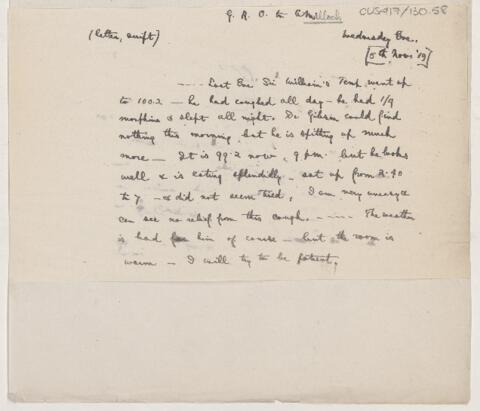 G. R. O. to
CUS417/130.58
(letter, swift)
Wednesday Eve.,
[5th Nov. '19]
---- Last Eve Sir William's Temp. went up
to 100.2 — he had coughed all day — he had 1/9
morphine & slept all night. Dr Gibson could find
nothing this morning but he is spitting up much
more — It is 99.2 now, 9 p.m. but he looks
well & is eating splendidly — sat up from 3.40
to 7 — & did not seem tired, I am very uneasy &
can see no relief from this cough. ---- The weather
is bad for him of course — but the room is
warm — I will try to be patient,